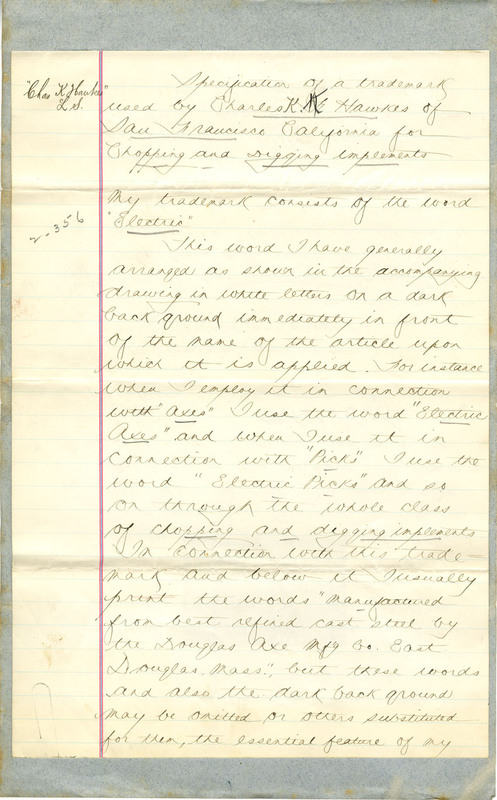 "Chas K Hawkes"
L S.
2-356
Specification of a trademark
used by Charles K. Hawkes of
San Francisco California for
Chopping and Digging implements
My trademark consists of the word
"Electric"
This word I have generally
arranged as shown in the accompanying
drawing in white letters on a dark
back ground immediately in front
of the name of the article upon
which it is applied. For instance
when I employ it in connection
with "Axes" I use the word "Electric
Axes" and when I use it in
connection with "Picks" I use the
word "Electric Picks" and so
on through the whole class
of chopping and digging implements
In connection with this trade-
mark and below it I usually
print the words "Manufactured
from best refined cast steel by
the Douglas Axe Mfg Co. East
Douglas, Mass.", but these words
and also the dark back ground
may be omitted or others substituted
for them, the essential feature of my